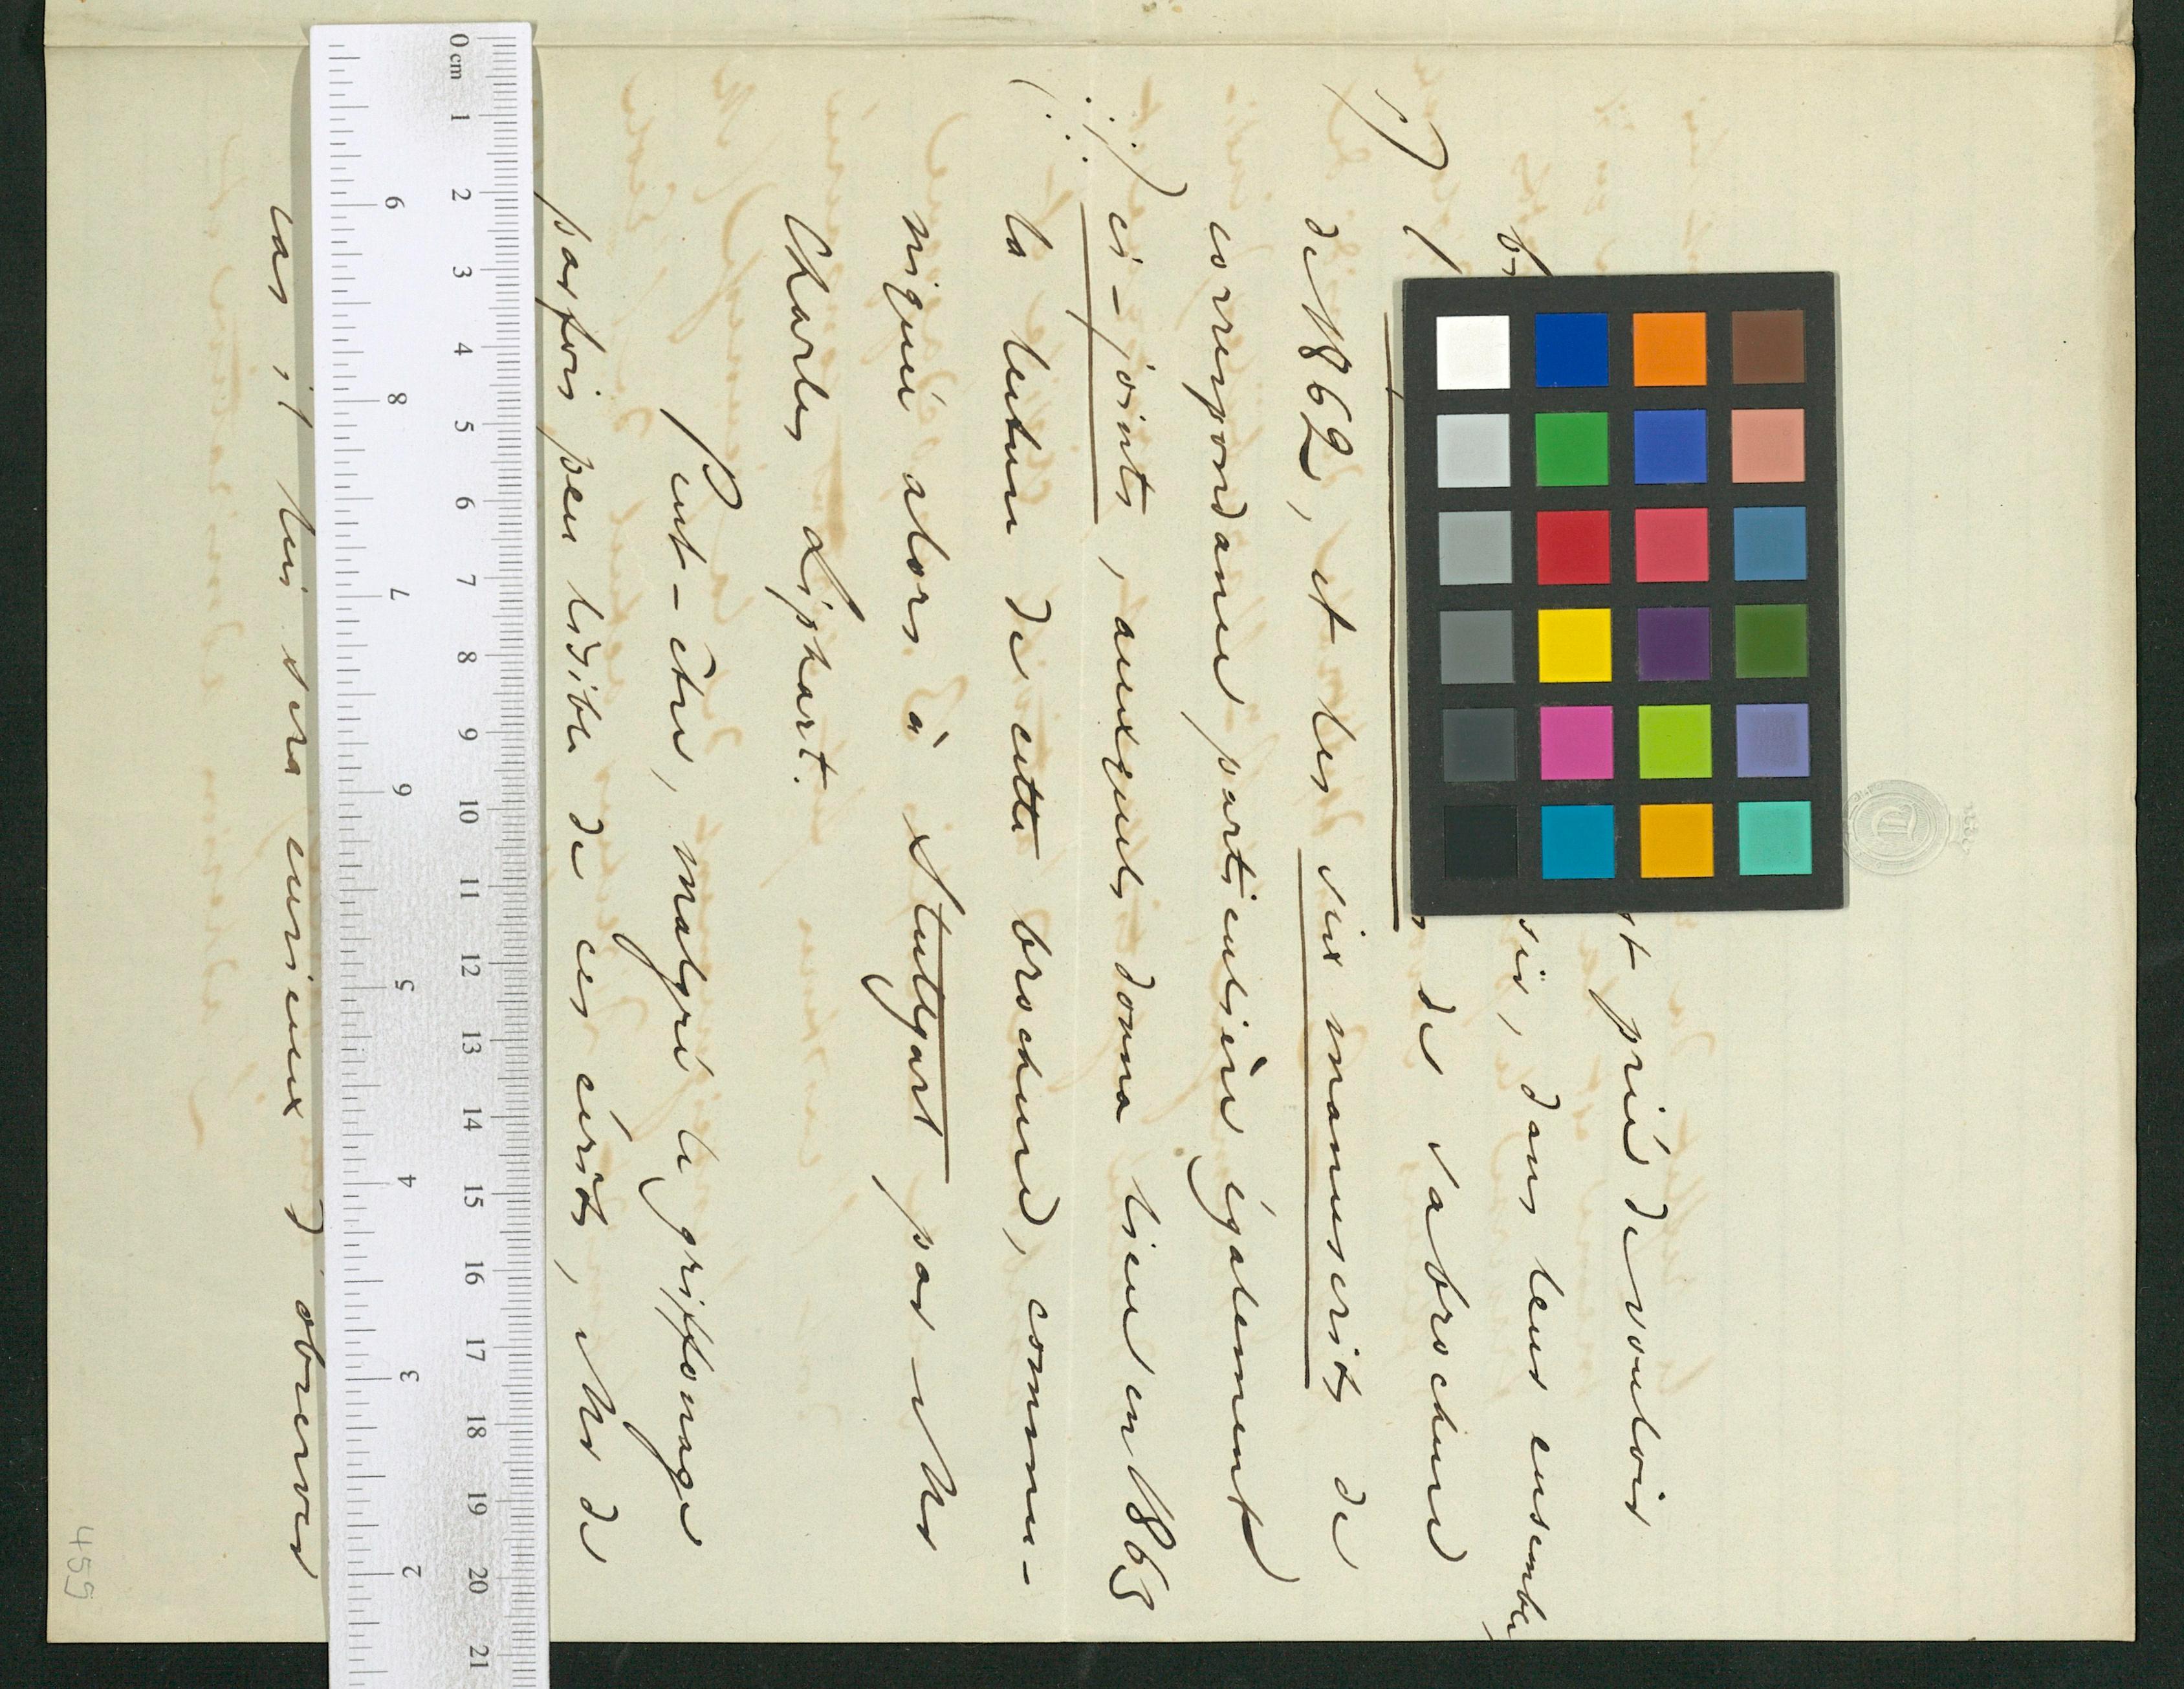 prié de vouloir
dans leur ensemble
de sa brochure
de 1862, et les six manuscrits de
correspondance particulière également
ci-joints, auxquels donna lieu en 1863
la lecture de cette brochure, commu-
niquée alors à Stuttgart par Mr
Charles Liphart.
Peut-être, malgré le griffonage
parfois peu lisible de ces écrits, Mr de
cas il lui sera curieux d'observer
455
0cm 1 2 3 4 5 6 7 8 9 10 11 12 13 14 15 16 17 18 19 20 21
9 8 7 6 5 4 3 2